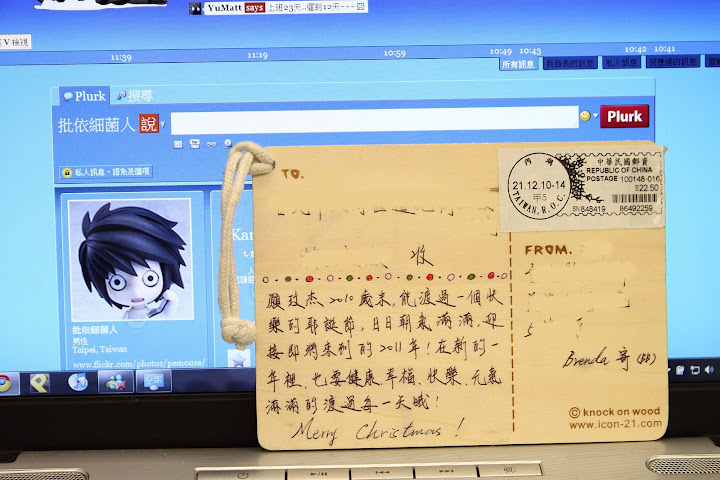 YuMatt says 上班23天..遲到12天~~~囧
V檢視
11:39 11:19 10:59 10:49 10:43 10:42 10:41
所有訊息 我發表的訊息 私人訊息 回應過的訊息
Plurk 搜尋
批依細菌人 說 Plurk
私人訊息、語系及選項
批依細菌人
男性
Taipei, Taiwan
www.flickr.com/photos/pemouse/
TO.
收
21.12.10-14
甲5
TAIWAN, R.O.C.
中華民國郵資
REPUBLIC OF CHINA
POSTAGE 100148-016
22.50
SN848419 86492259
FROM.
願玫杰2010歲末,能渡過一個快
樂的耶誕節,日日朝氣滿滿,迎
接即將來到的2011年!在新的一
年裡,也要健康、幸福、快樂、元氣
滿滿的渡過每一天哦!
Merry Christmas!
Brenda 寄
© knock on wood
www.icon-21.com